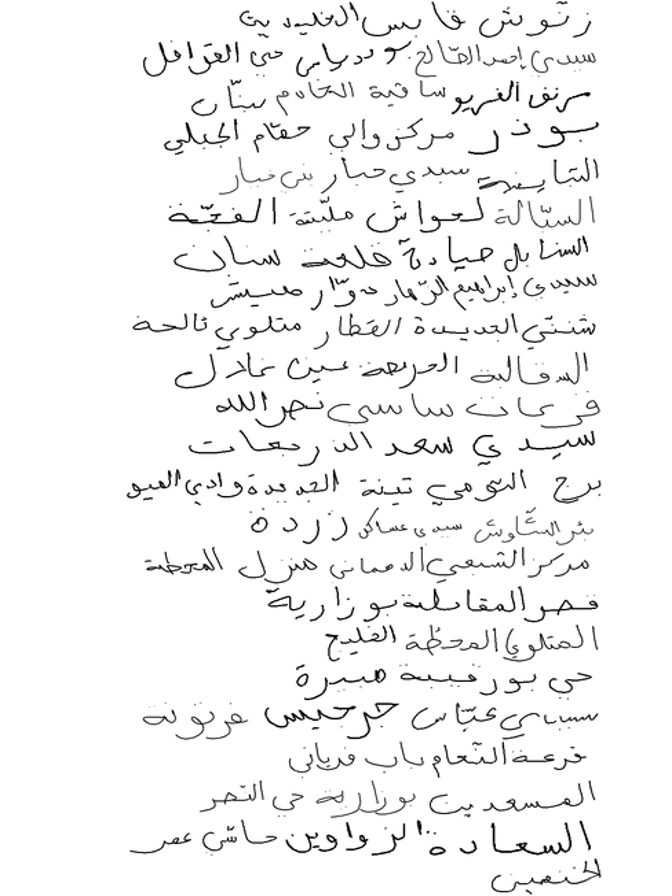 زنوش قابس الخليدية
سيدي إحمد الصالح بودرياس حي القوافل
سرنف الغريو ساقية الخادم بنان
بوذر مركز والي حمّام الجبلي
التبايضية سيدي حبار بني غيار
الستّالة لعواش مليّتة الفجّة
السنابل صيادة قلعة سنان
سيدي إبراهيم الزّهار دوّار هيشر
شنني الجديدة القطار متلوي ثالجة
السقالبة العريضة عين غلال
فرحات ساسي نصر الله
سيدي سعد الذريعات
برج التومي تينة الجديدة وادي الغيو
بئر الشّاوش سيدي عساكر زردة
مركز الشعبي الدهماني منزل المحطة
قصر المقابلية بوزارية
المتلوي المحطّة الخليج
حي بورقيبة هبيرة
سيدي عبّاس جرجيس غرنونة
قرعة النّعام باب قرباني
المسعدين بوزارية حي النصر
السعادة الزواوين حاشي عمر
الخنصين